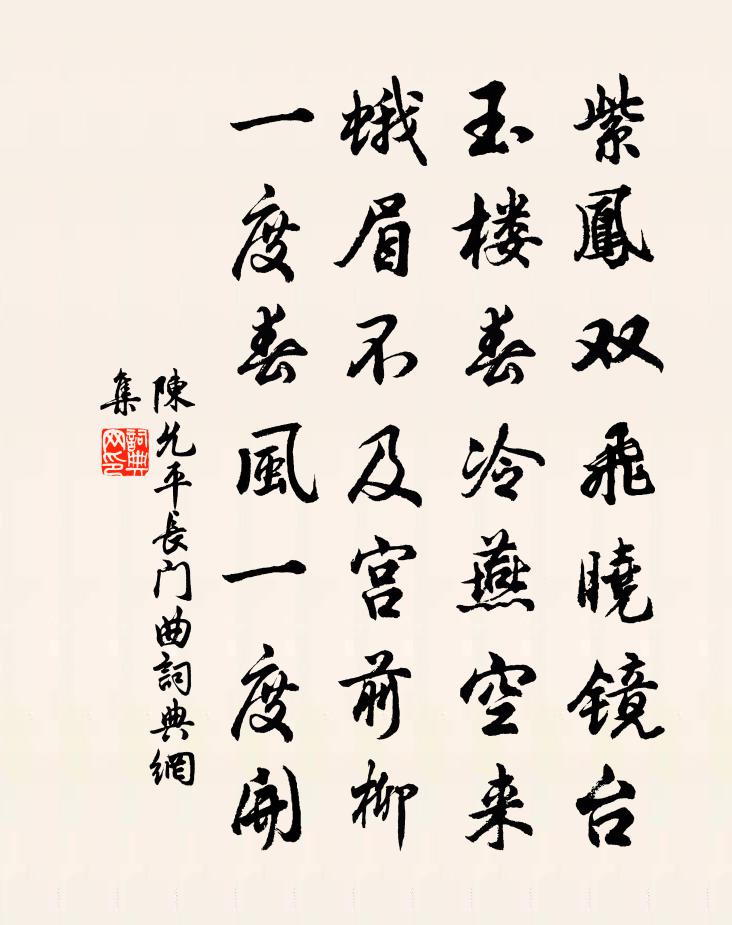 紫鳳双飛曉镜台
玉楼春冷燕空来
蛾眉不及宫前柳
一度春風一度開
陳允平長门曲詞典網
集
詞典
网印